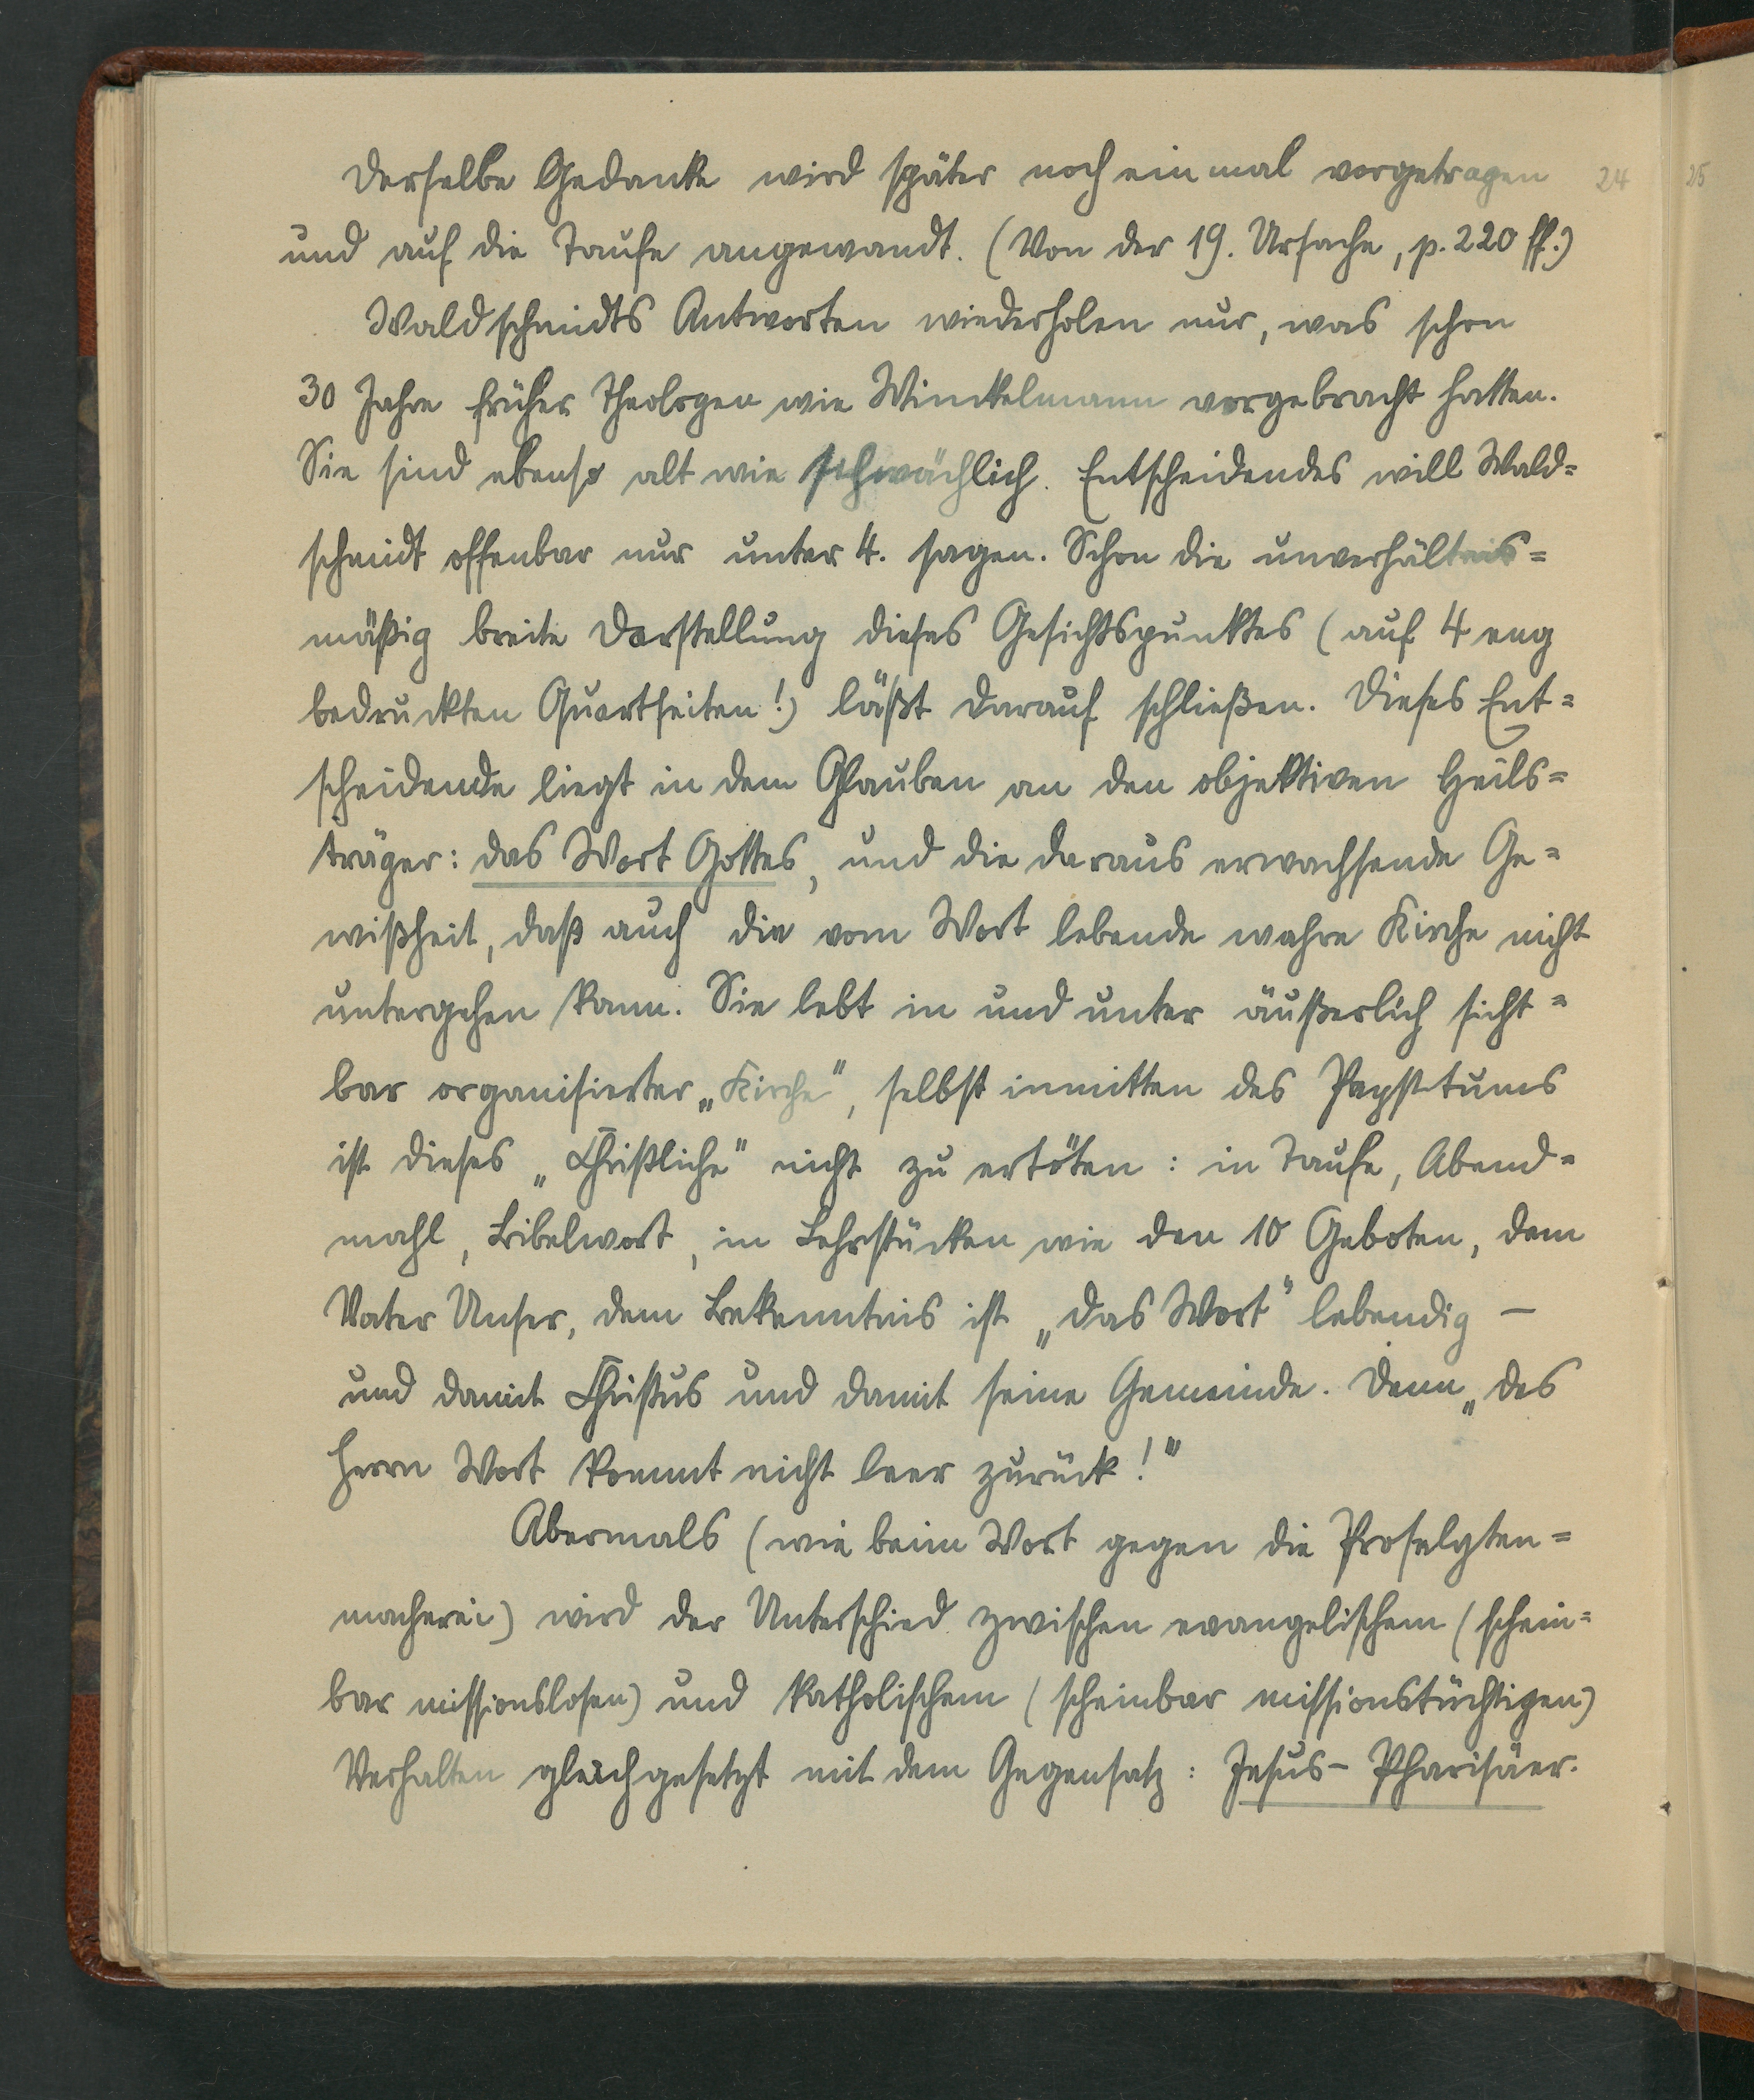 Derselbe Gedanke wird später noch einmal vorgetragen 24 25
und auf die Taufe angewandt. (Von der 19. Ursache, p. 220 ff.)
Waldschmidts Antworten wiederholen nur, was schon
30 Jahre früher Theologen wie Winckelmann vorgebracht hatten.
Sie sind ebenso alt wie schwächlich. Entscheidendes will Wald=
schmidt offenbar nur unter 4. sagen. Schon die unverhältnis=
mäßig breite Darstellung dieses Gesichtspunktes (auf 4 eng
bedruckten Quartseiten!) läßt darauf schließen. Dieses Ent=
scheidende liegt in dem Glauben an den objektiven Heils=
träger: das Wort Gottes, und die daraus erwachsende Ge=
wißheit, daß auch die vom Wort lebende wahre Kirche nicht
untergehen kann. Sie lebt in und unter äußerlich sicht=
bar organisierter „Kirche", selbst inmitten des Papsttums
ist dieses „Christliche" nicht zu ertöten: in Taufe, Abend=
mahl, Bibelwort, in Lehrstücken wie den 10 Geboten, dem
Vater Unser, dem Bekenntnis ist „das Wort" lebendig –
und damit Christus und damit seine Gemeinde. Denn „des
Herrn Wort kommt nicht leer zurück!"
Abermals (wie beim Wort gegen die Proselyten=
macherei) wird der Unterschied zwischen evangelischem (schein=
bar missionslosen) und katholischem (scheinbar missionstüchtigen)
Verhalten gleichgesetzt mit dem Gegensatz: Jesus – Pharisäer.